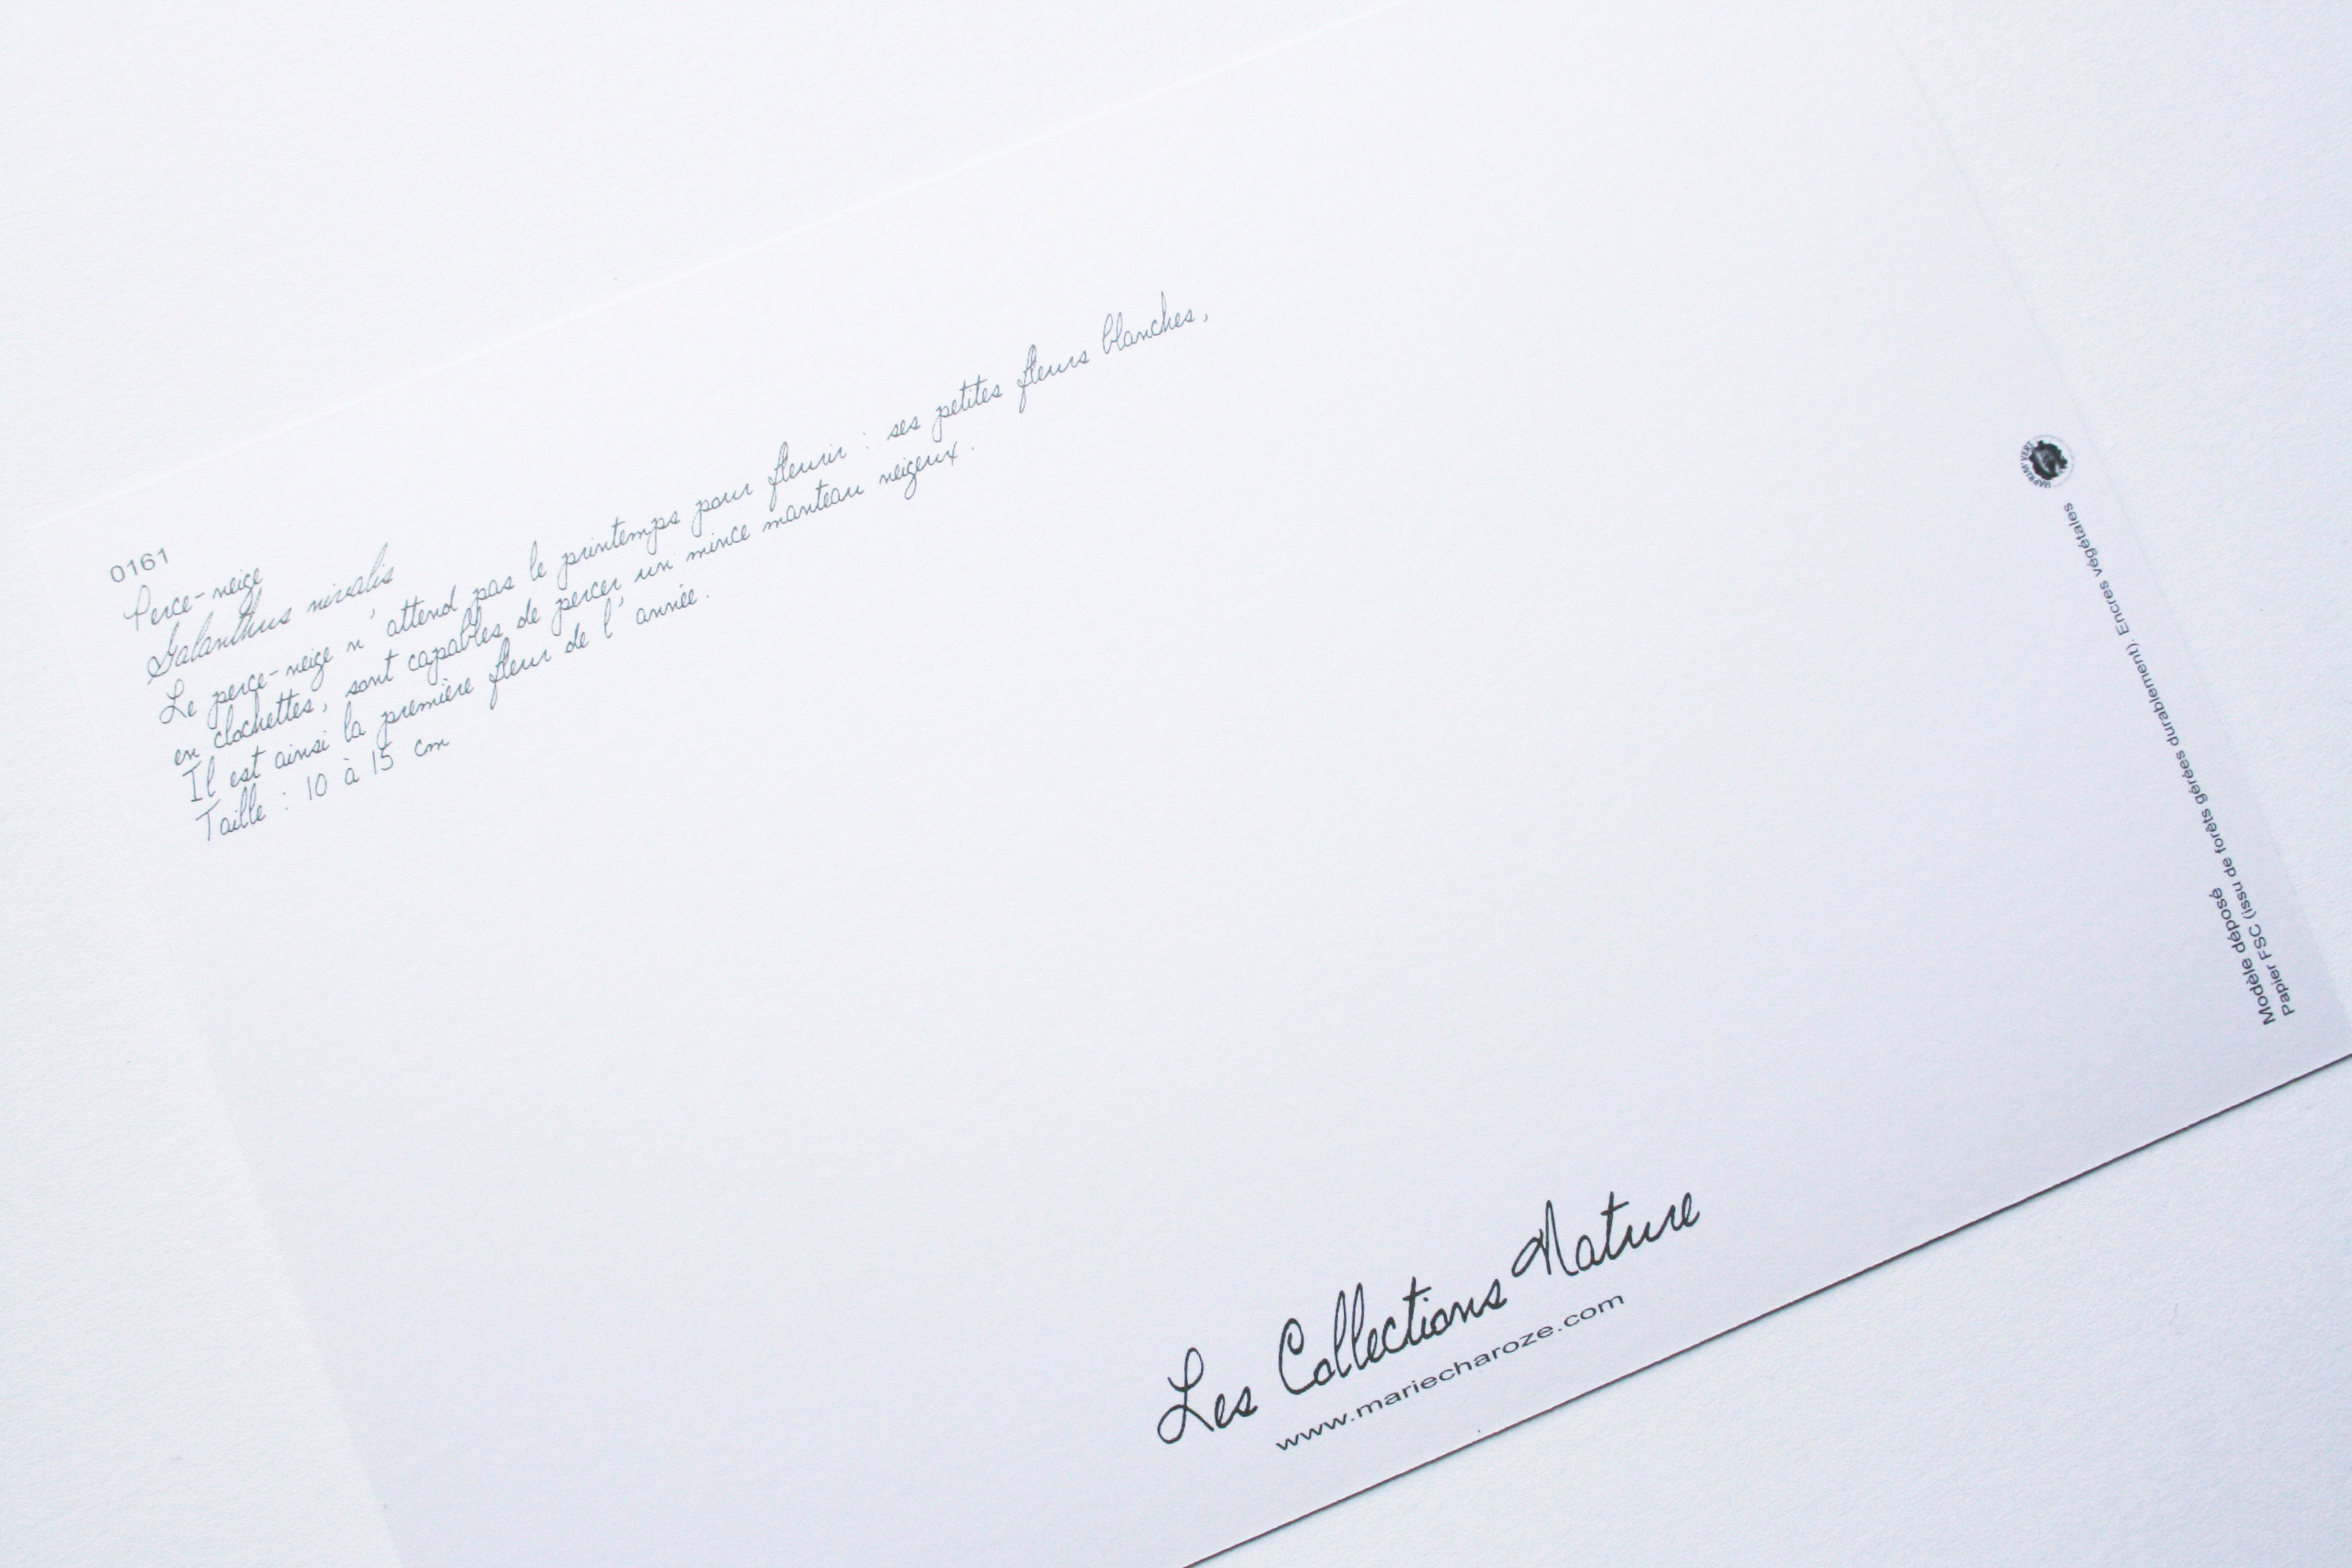 0161
Perce-neige
Galanthus nivalis
Le perce-neige n'attend pas le printemps pour fleurir : ses petites fleurs blanches,
en clochettes, sont capables de percer un mince manteau neigeux.
Il est ainsi la première fleur de l'année.
Taille : 10 à 15 cm
Les Collections Nature
www.mariecharoze.com
Modèle déposé
Papier FSC (issu de forêts gérées durablement). Encres végétales
IMPRIM'VERT